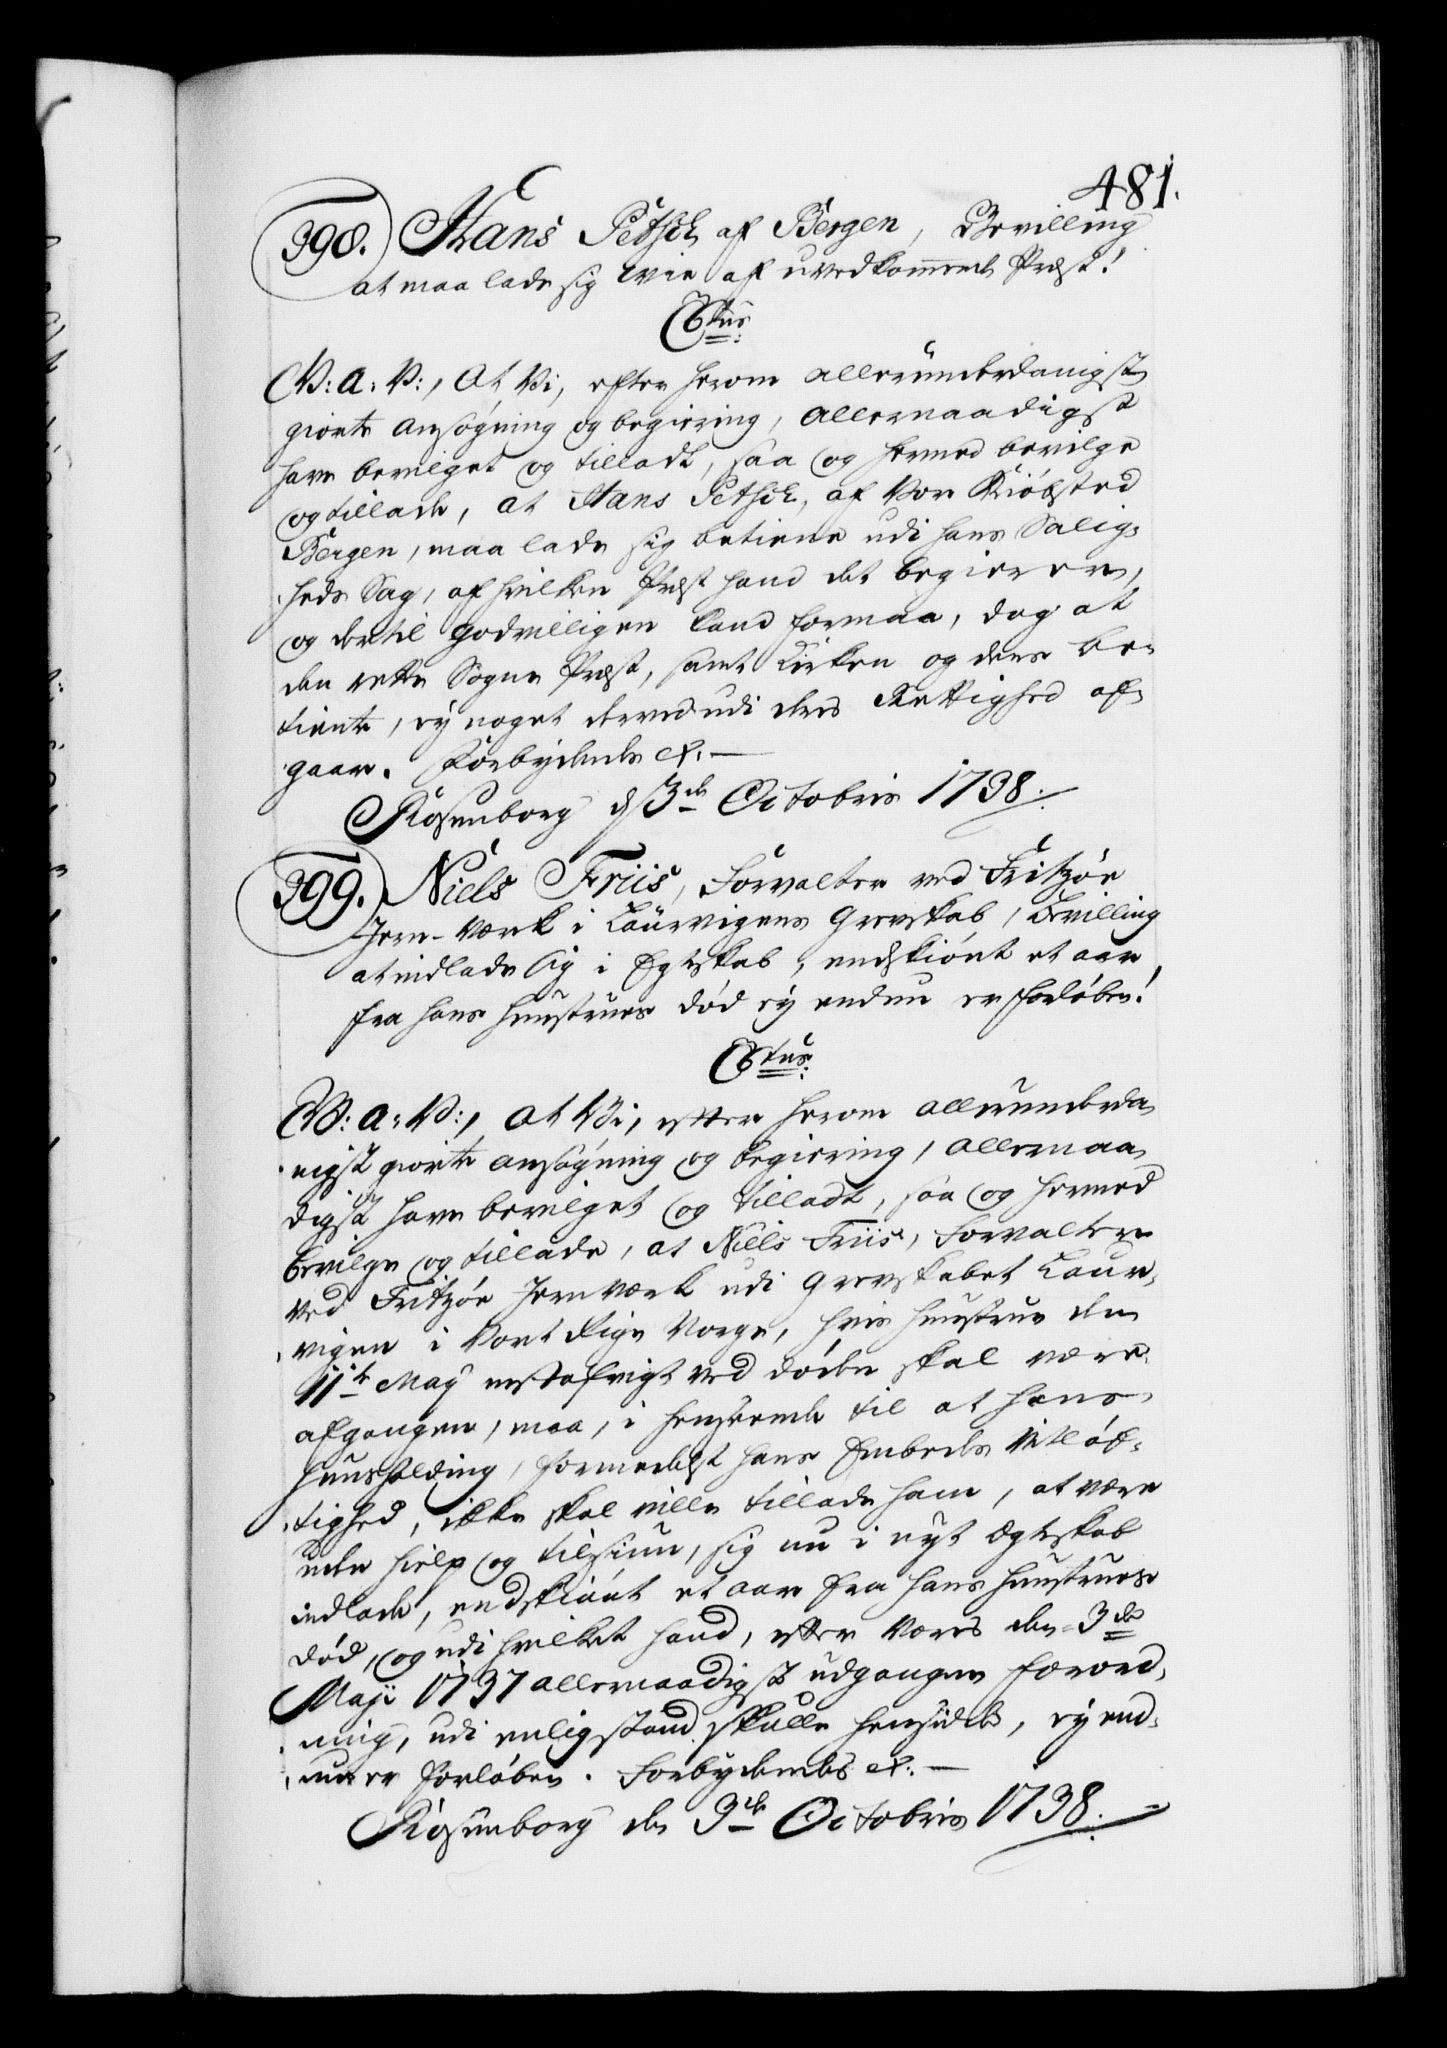 481.
398. Hans Petsch af Bergen, Bevilling
at maa lade sig vie af uvedkommende Præst!
Ctus:
C.V: a: V:, At Vi, efter herom allerunderdanigst
giorte ansøgning og begiering, allernaadigst
have bevilget og tilladt, saa og hermed bevilge
og tillade, at Hans Petsch, af Vor Kiøbsted
Bergen, maa lade sig betiene udi hans Salig-
heds Sag, af hvilken Præst hand det begierer,
og dertil godvilligen kand formaa, dog at
den rette Sogne Præst, samt Kirken og dens be-
tiente, ey noget derved udi deris Rettighed af-
gaar. Forbydende etc. —
Rosenborg d 3de Octobris 1738.
399. Niels Friis, Forvalter ved Fritzøe
Jern-Værk i Laurvigens Grevskab, Bevilling
at indlade sig i Egteskab, endskiønt et aar
fra hans Huustrues død ey endnu er forløben!
Ctus:
V: a: V:, At Vi, efter herom allerunderda-
nigst giorte ansøgning og begiering, allernaa-
digst have bevilget og tilladt, saa og hermed
bevilge og tillade, at Niels Friis, Forvalter
ved Fritzøe Jernværk udi Grevskabet Laur-
vigen i Vort Rige Norge, hvis Huustrue den
11te May nestafvigt ved døden skal være
afgangen, maa, i henseende til at hans
Huusholding, formedelst hans Embeds vitløf-
tighed, ikke skal ville tillade ham, at være
uden hielp og tilsiun, sig nu i nyt Ægteskab
indlade, endskiønt et aar fra hans Huustrues
død, og udi hvilket hand, efter Vores den 3die
Maji 1737 allernaadigst udgangne Forord-
ning, udi enligstand skulle hensidde, ey end-
nu er forløben. Forbydendes etc. —
Rosenborg den 3de Octobris 1738.